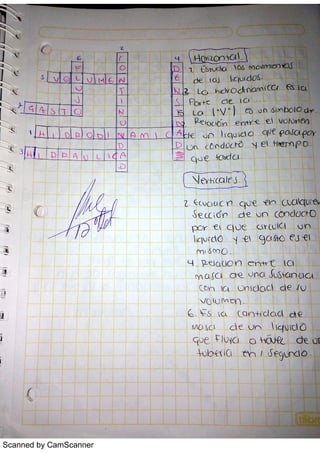 Horizontal
1. Estudia los movimientos
de los liquidos.
2. La hidrodinamica es la
Parte de la
La ("V") es un simbolo de
Relación entre el volumen
de un liquido que pasa por
un conducto y el tiempo
que tarda
Verticales
2. Ecuacion que en cualquier
Sección de un conducto
por el que circula un
liquido y el gasto es el
mismo.
4. Relacion entre la
masa de una Sustancia
con la unidad de su
volumen.
6. Es la cantidad de
masa de un liquido
que Fluye a través de un
tuberia en 1 Segundo.
5 VOLUMEN
2 GASTO
1 HIDRODINAMICA
3 HIDRAULICA
6 FLUJO
2 CONTINUIDAD
4 DENSIDAD
Scanned by CamScanner